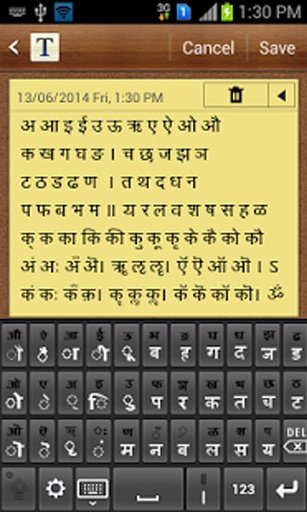 3G 1 1:30 PM
T Cancel Save
13/06/2014 Fri, 1:30 PM
अ आ इ ई उ ऊ ऋ ए ऐ ओ औ
क ख ग घ ङ । च छ ज झ ञ
ट ठ ड ढ ण । त थ द ध न
प फ ब भ म ॥ य र ल व श ष स ह ळ
क् क का कि की कु कू कृ के कै को कौ
अं अः अँ ऒ। ॠ ऌ ॡ। ऍ ऎ ऑ ऒ । ऽ
कं कः कँ क़। कॄ कॢ कॣ। कॅ कॆ कॉ कॊ। ॐ
औ ऐ आ ई ऊ भ ङ घ ध झ ढ
ौ ै ा ी ू ब ह ग द ज ड
ओ ए अ इ उ फ ख थ छ ठ
ो े ् ि ु प र क त च ट
DEL
म न व ल स य
। 123